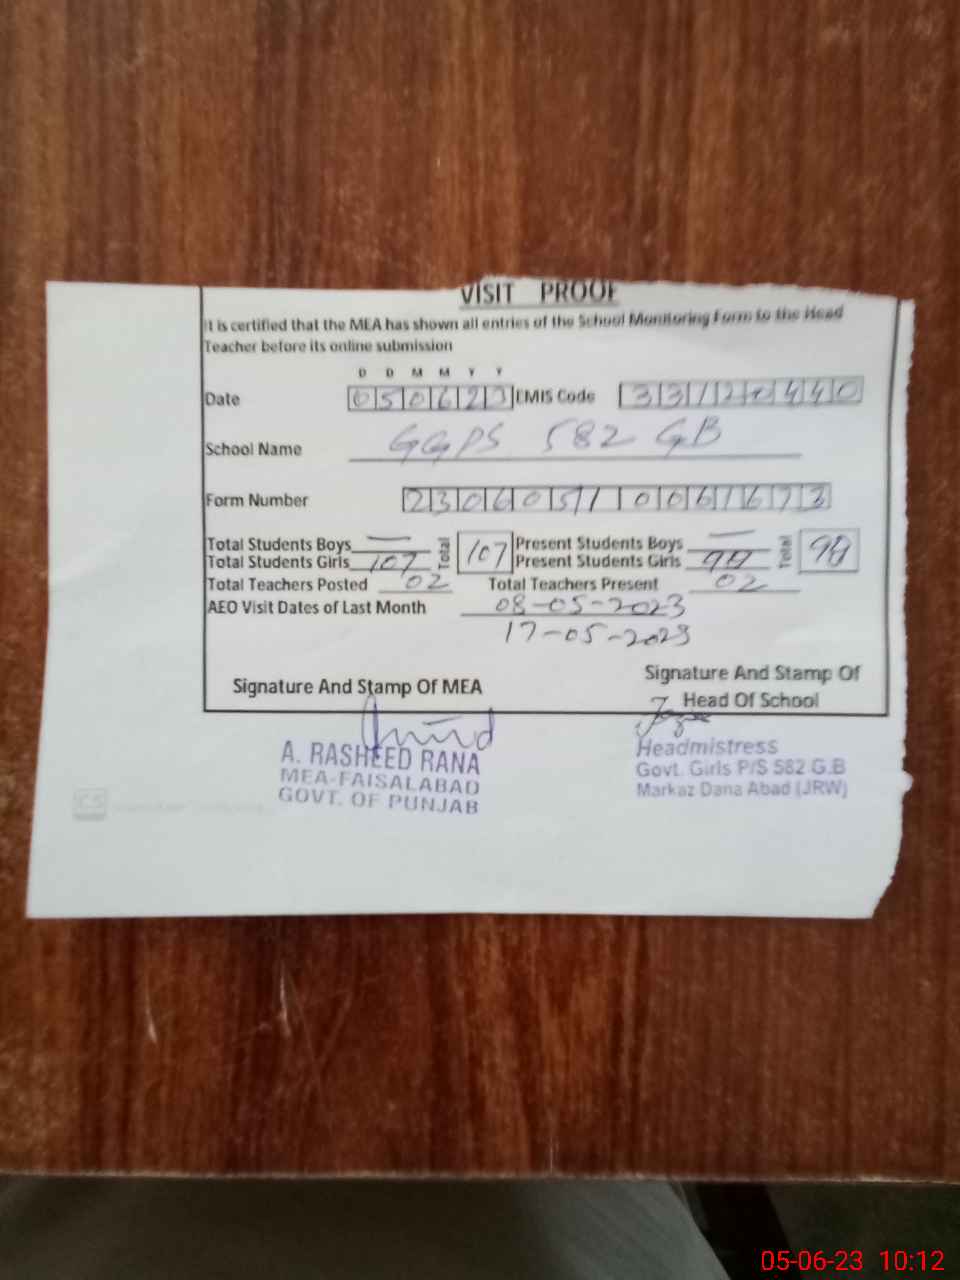 VISIT PROOF
It is certified that the MEA has shown all entries of the School Monitoring Form to the Head
Teacher before its online submission
D D M M Y Y
Date 050623 EMIS Code 33120440
School Name GGPS 582 GB
Form Number 230605/
Total Students Boys — Total 107 Present Students Boys — Total
Total Students Girls 107 Present Students Girls
Total Teachers Posted 02 Total Teachers Present 02
AEO Visit Dates of Last Month 08-05-2023
17-05-2023
Signature And Stamp Of MEA Signature And Stamp Of
Head Of School
A. RASHEED RANA
MEA-FAISALABAD
GOVT. OF PUNJAB
Headmistress
Govt. Girls P/S 582 G.B
Markaz Dana Abad (JRW)
CS
05-06-23 10:12